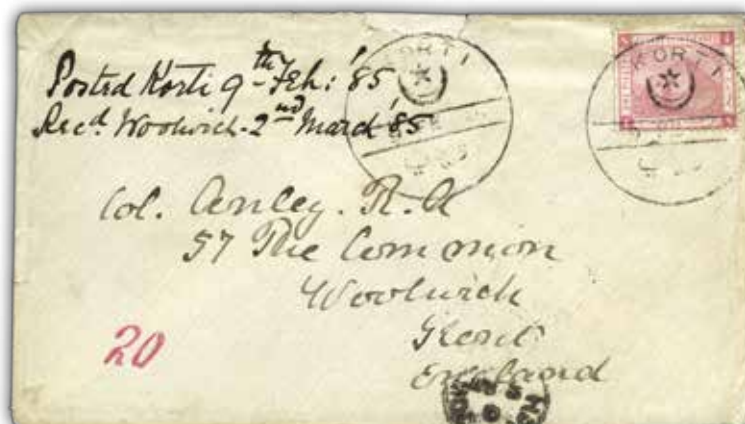 Posted Korti 9th Feb: '85
Recd Woolwich. 2nd March '85
KORTI
KORTI
Col. Anley. R.A
57 The Common
Woolwich
Kent
England
20